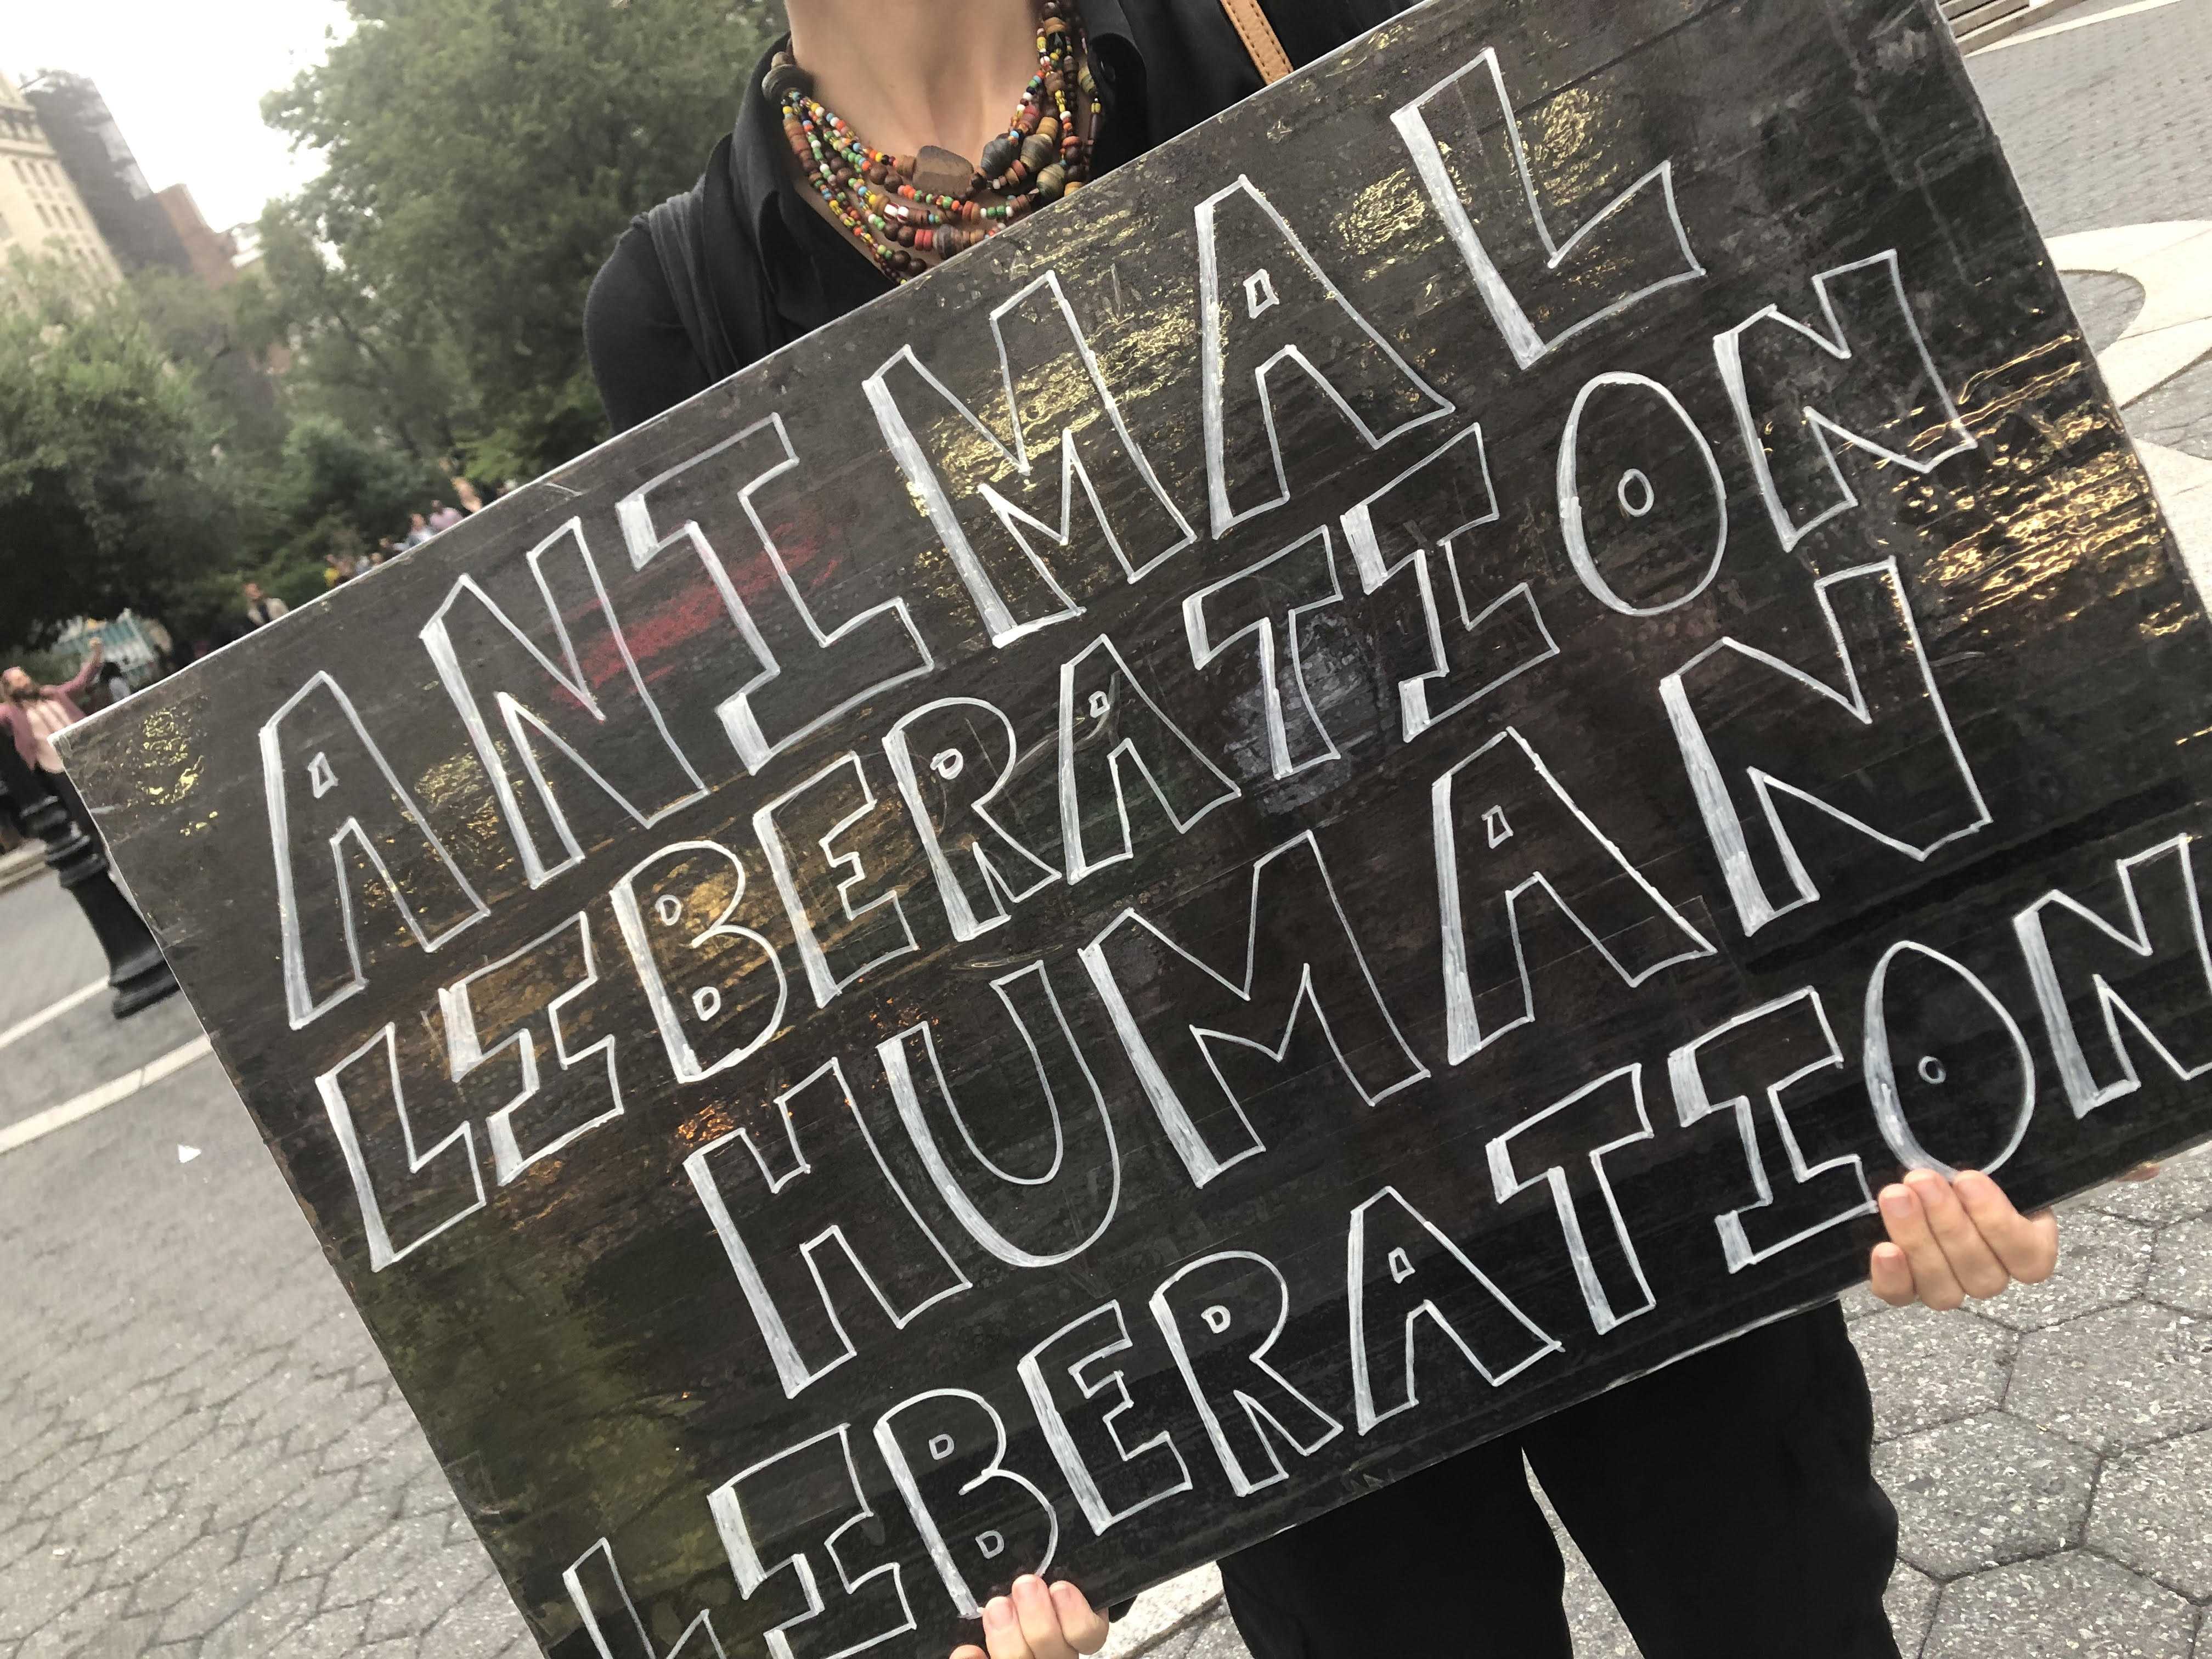 ANIMAL
LIBERATION
HUMAN
LIBERATION